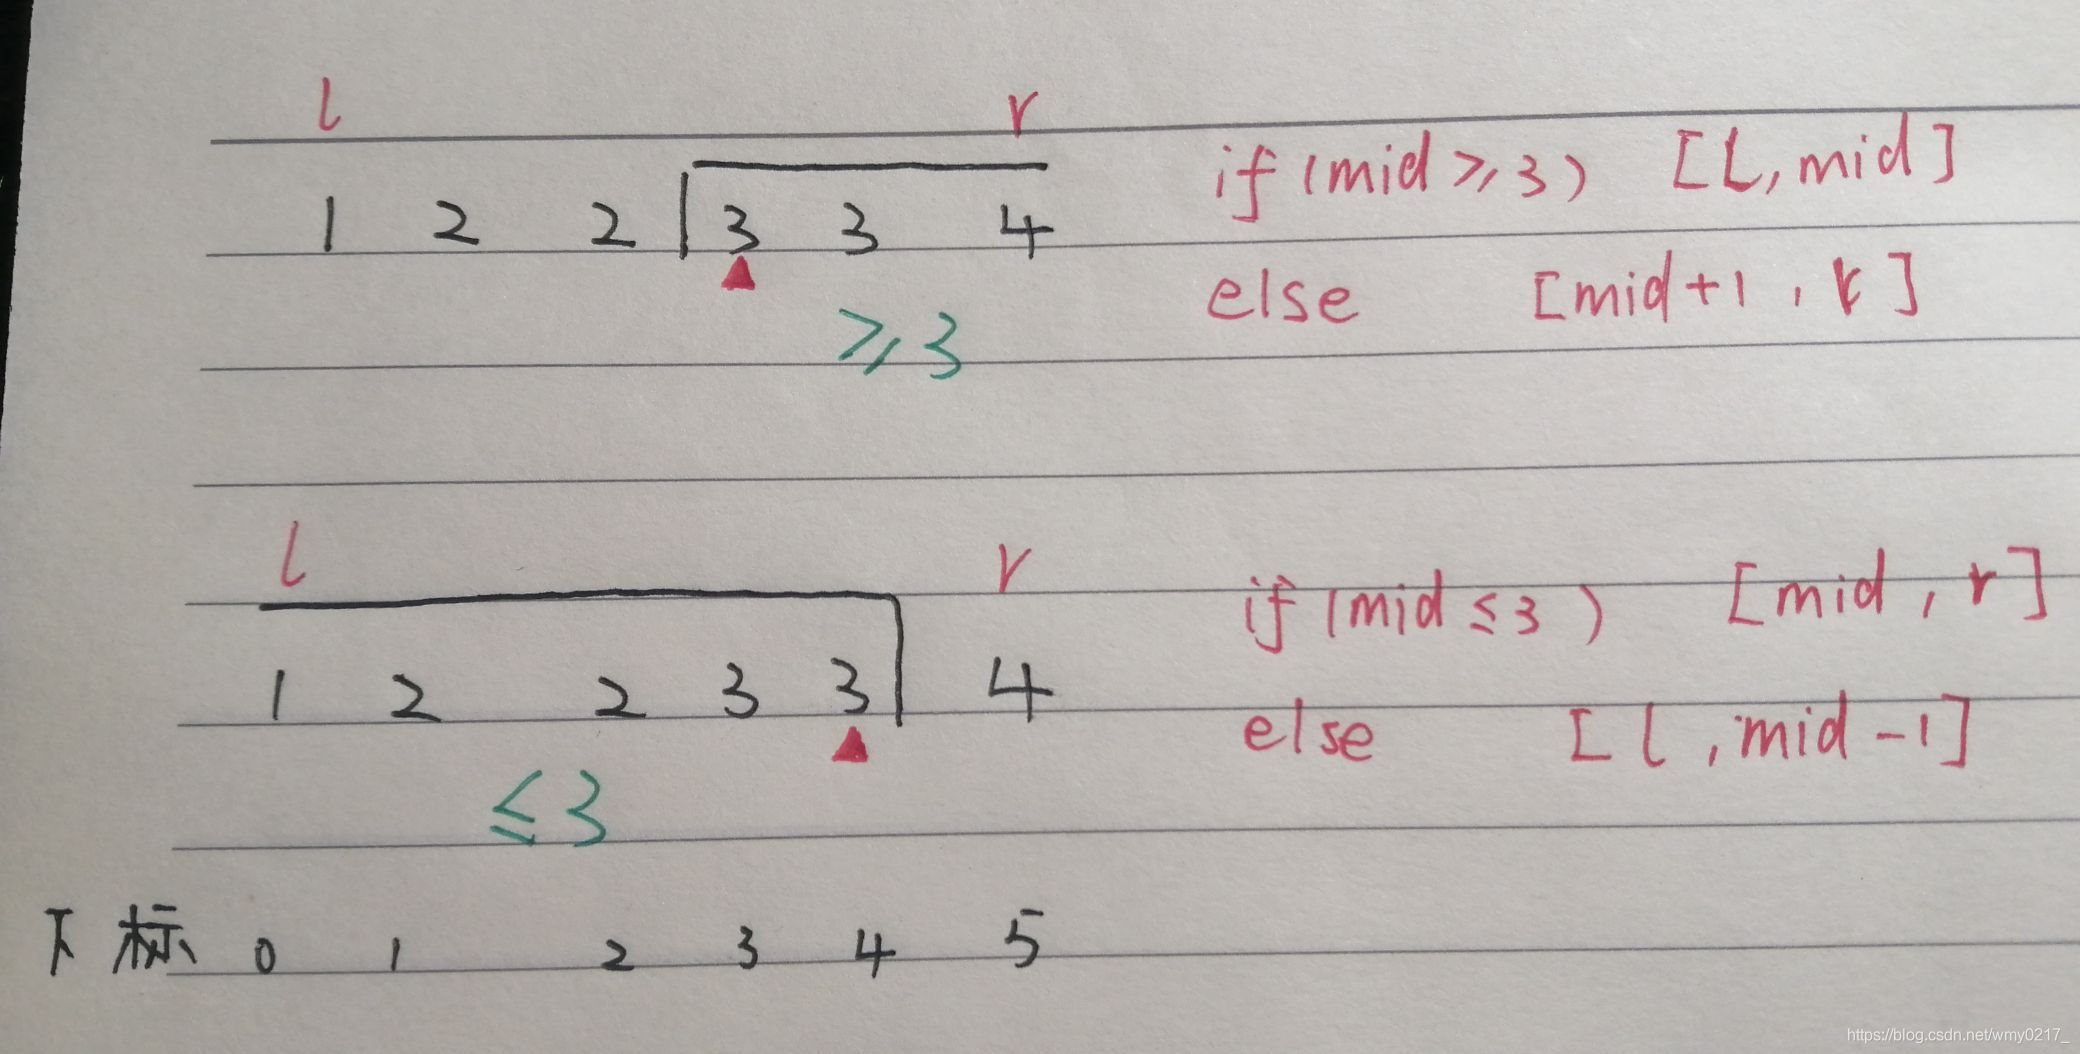 l r
1 2 2 3 3 4 if (mid ≥ 3) [l, mid]
else [mid+1, r]
≥ 3
l r
1 2 2 3 3 4 if (mid ≤ 3) [mid, r]
else [l, mid-1]
≤ 3
下标 0 1 2 3 4 5
https://blog.csdn.net/wmy0217_